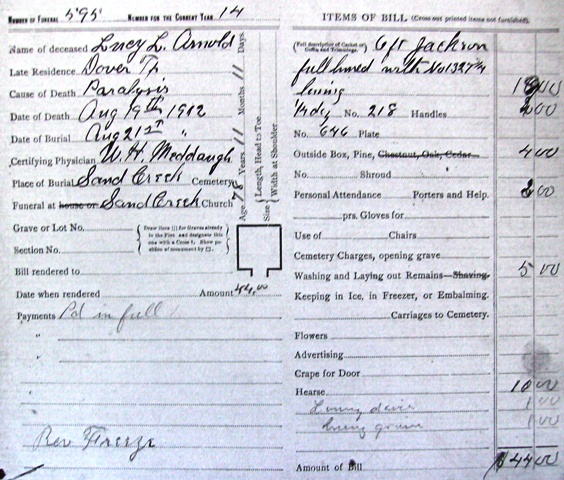 NUMBER OF FUNERAL 595 NUMBER FOR THE CURRENT YEAR 14
Name of deceased Lucy L. Arnold
Late Residence Dover Tp
Cause of Death Paralysis
Date of Death Aug 19th 1912
Date of Burial Aug 21st "
Certifying Physician W. H. Meddaugh
Place of Burial Sand Creek Cemetery
Funeral at house or Sand Creek Church
Age 78 Years 11 Months 11 Days
Size { Length, Head to Toe.
Width at Shoulder
Grave or Lot No.
Section No.
{ Draw lines for Graves already in the Plot and designate this one with a Cross †. Show position of monument by □. }
Bill rendered to
Date when rendered Amount 44.00
Payments Pd in full
"
Rev Freeze
ITEMS OF BILL (Cross out printed items not furnished).
(Full description of Casket or Coffin and Trimmings. 6ft Jackson
full lined with No 1327 1/4
lining
1/4 No. 218 Handles
No. 646 Plate
Outside Box, Pine, Chestnut, Oak, Cedar 4 00
No. Shroud
Personal Attendance Porters and Help. 00
prs. Gloves for
Use of Chairs
Cemetery Charges, opening grave
Washing and Laying out Remains—Shaving. 5 00
Keeping in Ice, in Freezer, or Embalming.
Carriages to Cemetery.
Flowers
Advertising
Crape for Door
Hearse 10 00
1 00
lining grave 00
Amount of Bill $44 00